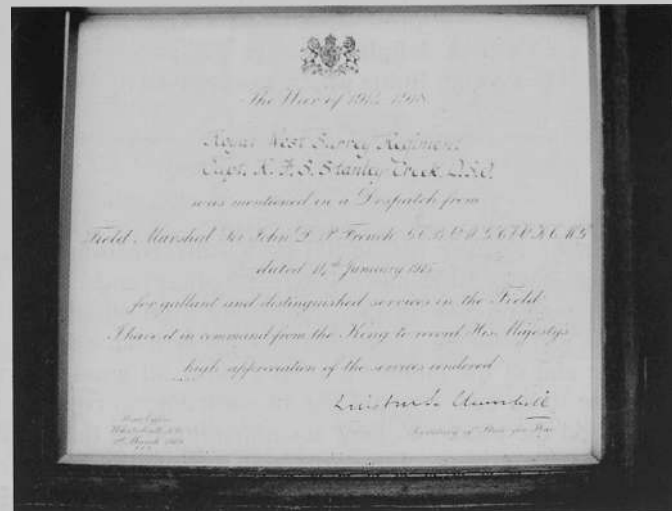 The War of 1914-1918.
Royal West Surrey Regiment
Capt. S. Stanley Creek, D.S.O.
was mentioned in a Despatch from
Field Marshal Sir John D. P. French G.C.B. O.M. G.C.V.O. K.C.M.G.
dated 14th January 1915
for gallant and distinguished services in the Field.
I have it in command from the King to record His Majesty's
high appreciation of the services rendered.
Winston S. Churchill
War Office
Whitehall, S.W.
1st March 1919
Secretary of State for War